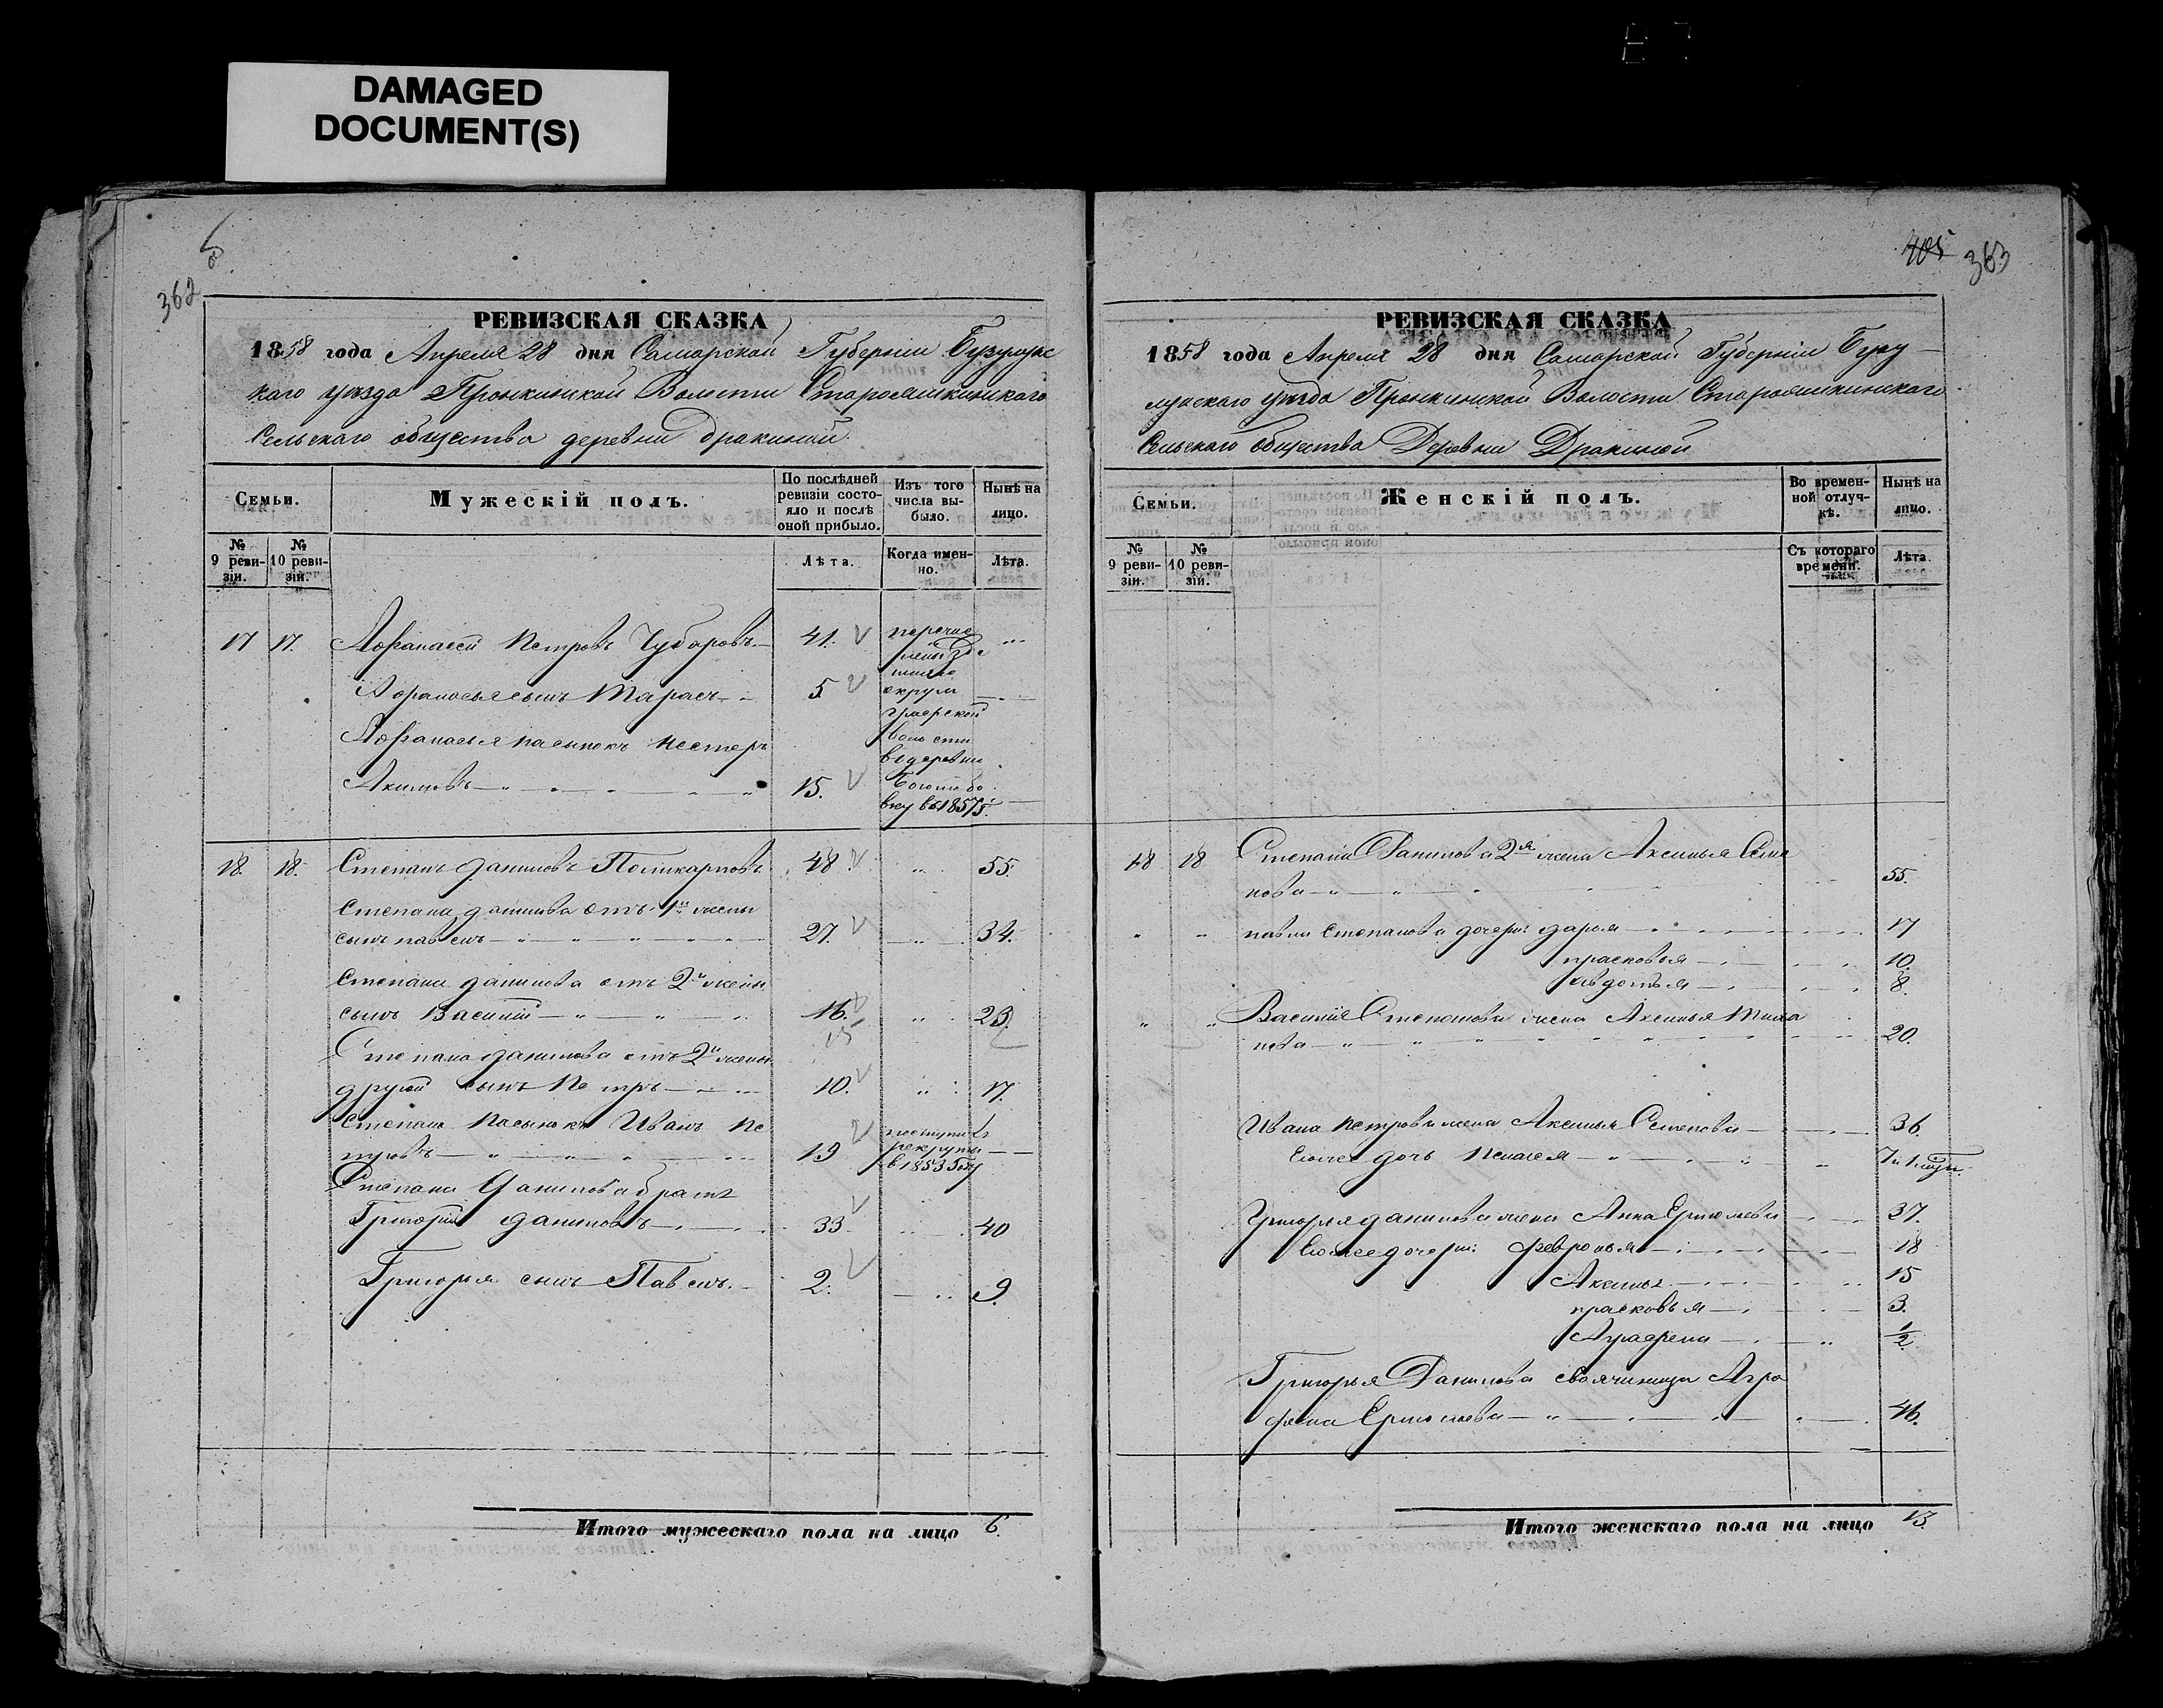 DAMAGED
DOCUMENT(S)
362
РЕВИЗСКАЯ СКАЗКА
1858 года Апреля 28 дня Самарской Губернiи Бузулукс
каго уѣзда Пронкинской Волости Старояшкинскаго
Сельскаго общества деревни Дракиной
Семьи.
Мужескiй полъ.
По послѣдней
ревизiи состо-
яло и послѣ
оной прибыло.
Изъ того
числа вы-
было.
Нынѣ на
лицо.
№
9 реви-
зiи.
№
10 реви-
зiи.
Лѣта.
Когда имен-
но.
Лѣта.
17 17. Афанасей Петровъ Чубаровъ 41. перечис
лены
Афанасья сынъ Тарасъ 5 округи
волости
Афанасья пасынокъ Нестеръ
в деревни
Акимовъ 15.
вку в 1857 г.
18. 18. Степанъ Даниловъ Поликарповъ 48. 55.
Степана Данилова отъ 1й жены
сынъ Павелъ 27. 34.
Степана Данилова отъ 2й жены
сынъ Василiй 16. 23.
15
Степана Данилова отъ 2й жены
другой сынъ Петръ 10. 17.
Степана пасынокъ Иванъ Пе
тровъ 19 поступилъ
рекруты
в 1853 году
Степана Данилова братъ
Григорiй Даниловъ 33 40
Григорья сынъ Павелъ 2. 9.
Итого мужескаго пола на лицо 6.
405 363
РЕВИЗСКАЯ СКАЗКА
1858 года Апреля 28 дня Самарской Губернiи Бузу
лукскаго уѣзда Пронкинской Волости Старояшкинскаго
Сельскаго общества Деревни Дракиной
Семьи.
Женскiй полъ.
Во времен-
ной отлуч-
кѣ.
Нынѣ на
лицо.
№
9 реви-
зiи.
№
10 реви-
зiи.
Съ котораго
времени.
Лѣта.
18 18 Степана Данилова 2я жена Аксинья Семе
нова 55.
Павла Степанова дочери Дарья 17
Прасковья 10.
Авдотья 8.
Василiя Степанова жена Аксинья Тиха
нова 20.
Ивана Петрова жена Аксинья Семенова 36.
Ево же дочь Пелагея
Григорья Данилова жена Анна Ермолаева 37.
Ево же дочери: Февронья 18
Аксинья 15
Прасковья 3.
Аграфена 1/2
Григорья Данилова своячиница Агра
фена Ермолаева 46.
Итого женскаго пола на лицо 13.